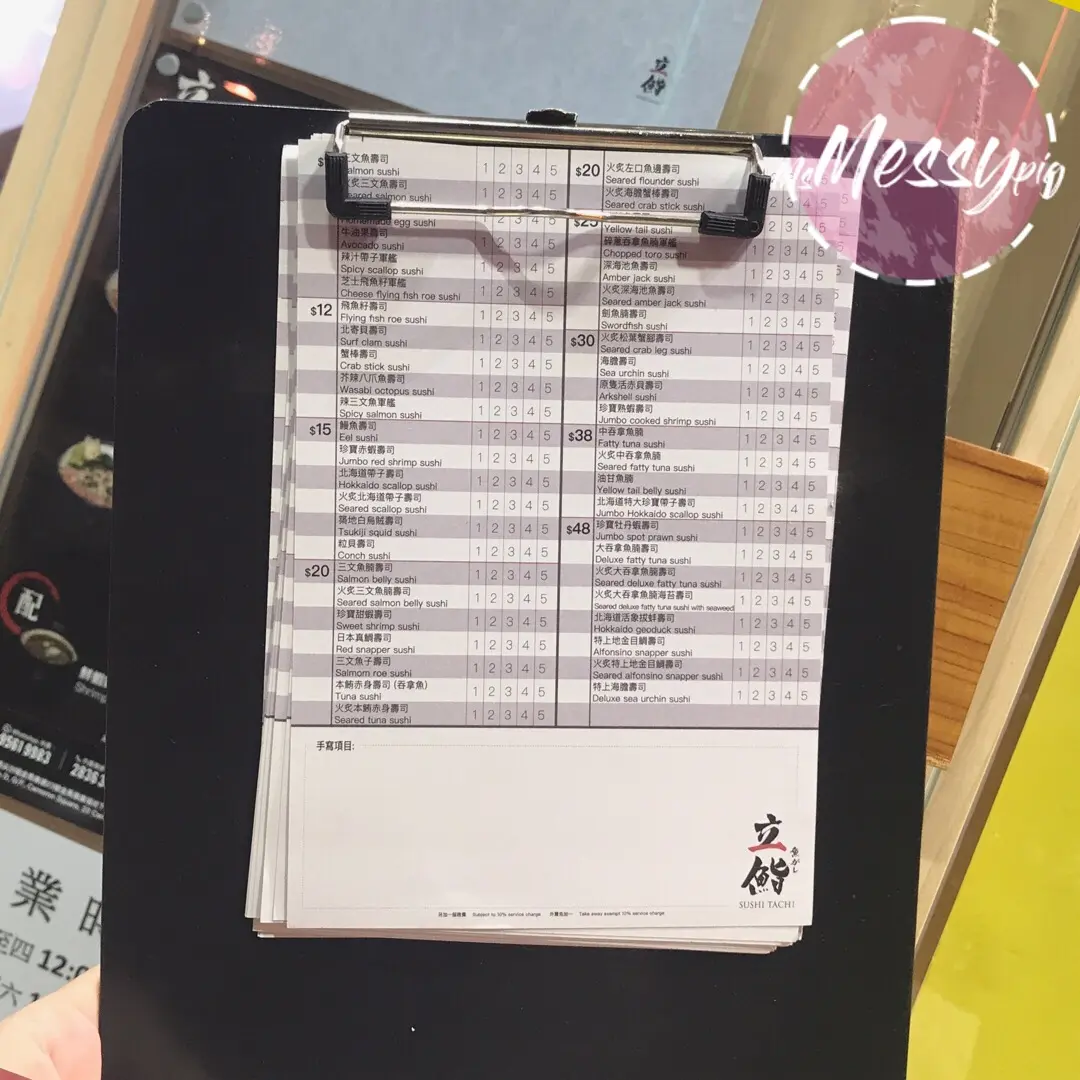 立鮨
Messypig
三文魚壽司
Salmon sushi
1 2 3 4 5
火炙三文魚壽司
Seared salmon sushi
1 2 3 4 5
Homemade egg sushi
1 2 3 4 5
牛油果壽司
Avocado sushi
1 2 3 4 5
辣汁帶子軍艦
Spicy scallop sushi
1 2 3 4 5
芝士飛魚籽軍艦
Cheese flying fish roe sushi
1 2 3 4 5
$12
飛魚籽壽司
Flying fish roe sushi
1 2 3 4 5
北寄貝壽司
Surf clam sushi
1 2 3 4 5
蟹棒壽司
Crab stick sushi
1 2 3 4 5
芥辣八爪魚壽司
Wasabi octopus sushi
1 2 3 4 5
辣三文魚軍艦
Spicy salmon sushi
1 2 3 4 5
$15
鰻魚壽司
Eel sushi
1 2 3 4 5
珍寶赤蝦壽司
Jumbo red shrimp sushi
1 2 3 4 5
北海道帶子壽司
Hokkaido scallop sushi
1 2 3 4 5
火炙北海道帶子壽司
Seared scallop sushi
1 2 3 4 5
築地白烏賊壽司
Tsukiji squid sushi
1 2 3 4 5
粒貝壽司
Conch sushi
1 2 3 4 5
$20
三文魚腩壽司
Salmon belly sushi
1 2 3 4 5
火炙三文魚腩壽司
Seared salmon belly sushi
1 2 3 4 5
珍寶甜蝦壽司
Sweet shrimp sushi
1 2 3 4 5
日本真鯛壽司
Red snapper sushi
1 2 3 4 5
三文魚子壽司
Salmom roe sushi
1 2 3 4 5
本鮪赤身壽司 (吞拿魚)
Tuna sushi
1 2 3 4 5
火炙本鮪赤身壽司
Seared tuna sushi
1 2 3 4 5
$20
火炙左口魚邊壽司
Seared flounder sushi
火炙海膽蟹棒壽司
Seared crab stick sushi
2 3 4 5
$25
Yellow tail sushi
1 2 3 4 5
碎蔥吞拿魚腩軍艦
Chopped toro sushi
1 2 3 4 5
深海池魚壽司
Amber jack sushi
1 2 3 4 5
火炙深海池魚壽司
Seared amber jack sushi
1 2 3 4 5
劍魚腩壽司
Swordfish sushi
1 2 3 4 5
$30
火炙松葉蟹腳壽司
Seared crab leg sushi
1 2 3 4 5
海膽壽司
Sea urchin sushi
1 2 3 4 5
原隻活赤貝壽司
Arkshell sushi
1 2 3 4 5
珍寶熟蝦壽司
Jumbo cooked shrimp sushi
1 2 3 4 5
$38
中吞拿魚腩
Fatty tuna sushi
1 2 3 4 5
火炙中吞拿魚腩
Seared fatty tuna sushi
1 2 3 4 5
油甘魚腩
Yellow tail belly sushi
1 2 3 4 5
北海道特大珍寶帶子壽司
Jumbo Hokkaido scallop sushi
1 2 3 4 5
$48
珍寶牡丹蝦壽司
Jumbo spot prawn sushi
1 2 3 4 5
大吞拿魚腩壽司
Deluxe fatty tuna sushi
1 2 3 4 5
火炙大吞拿魚腩壽司
Seared deluxe fatty tuna sushi
1 2 3 4 5
火炙大吞拿魚腩海苔壽司
Seared deluxe fatty tuna sushi with seaweed
1 2 3 4 5
北海道活象拔蚌壽司
Hokkaido geoduck sushi
1 2 3 4 5
特上地金目鯛壽司
Alfonsino snapper sushi
1 2 3 4 5
火炙特上地金目鯛壽司
Seared alfonsino snapper sushi
1 2 3 4 5
特上海膽壽司
Deluxe sea urchin sushi
1 2 3 4 5
手寫項目:
立鮨
魚がし
SUSHI TACHI
另加一服務費 Subject to 10% service charge 外賣免加一 Take away exempt 10% service charge
配
Shrimp
9561 9983
2836
Cameron Square,
業
至四 12:0
六 1